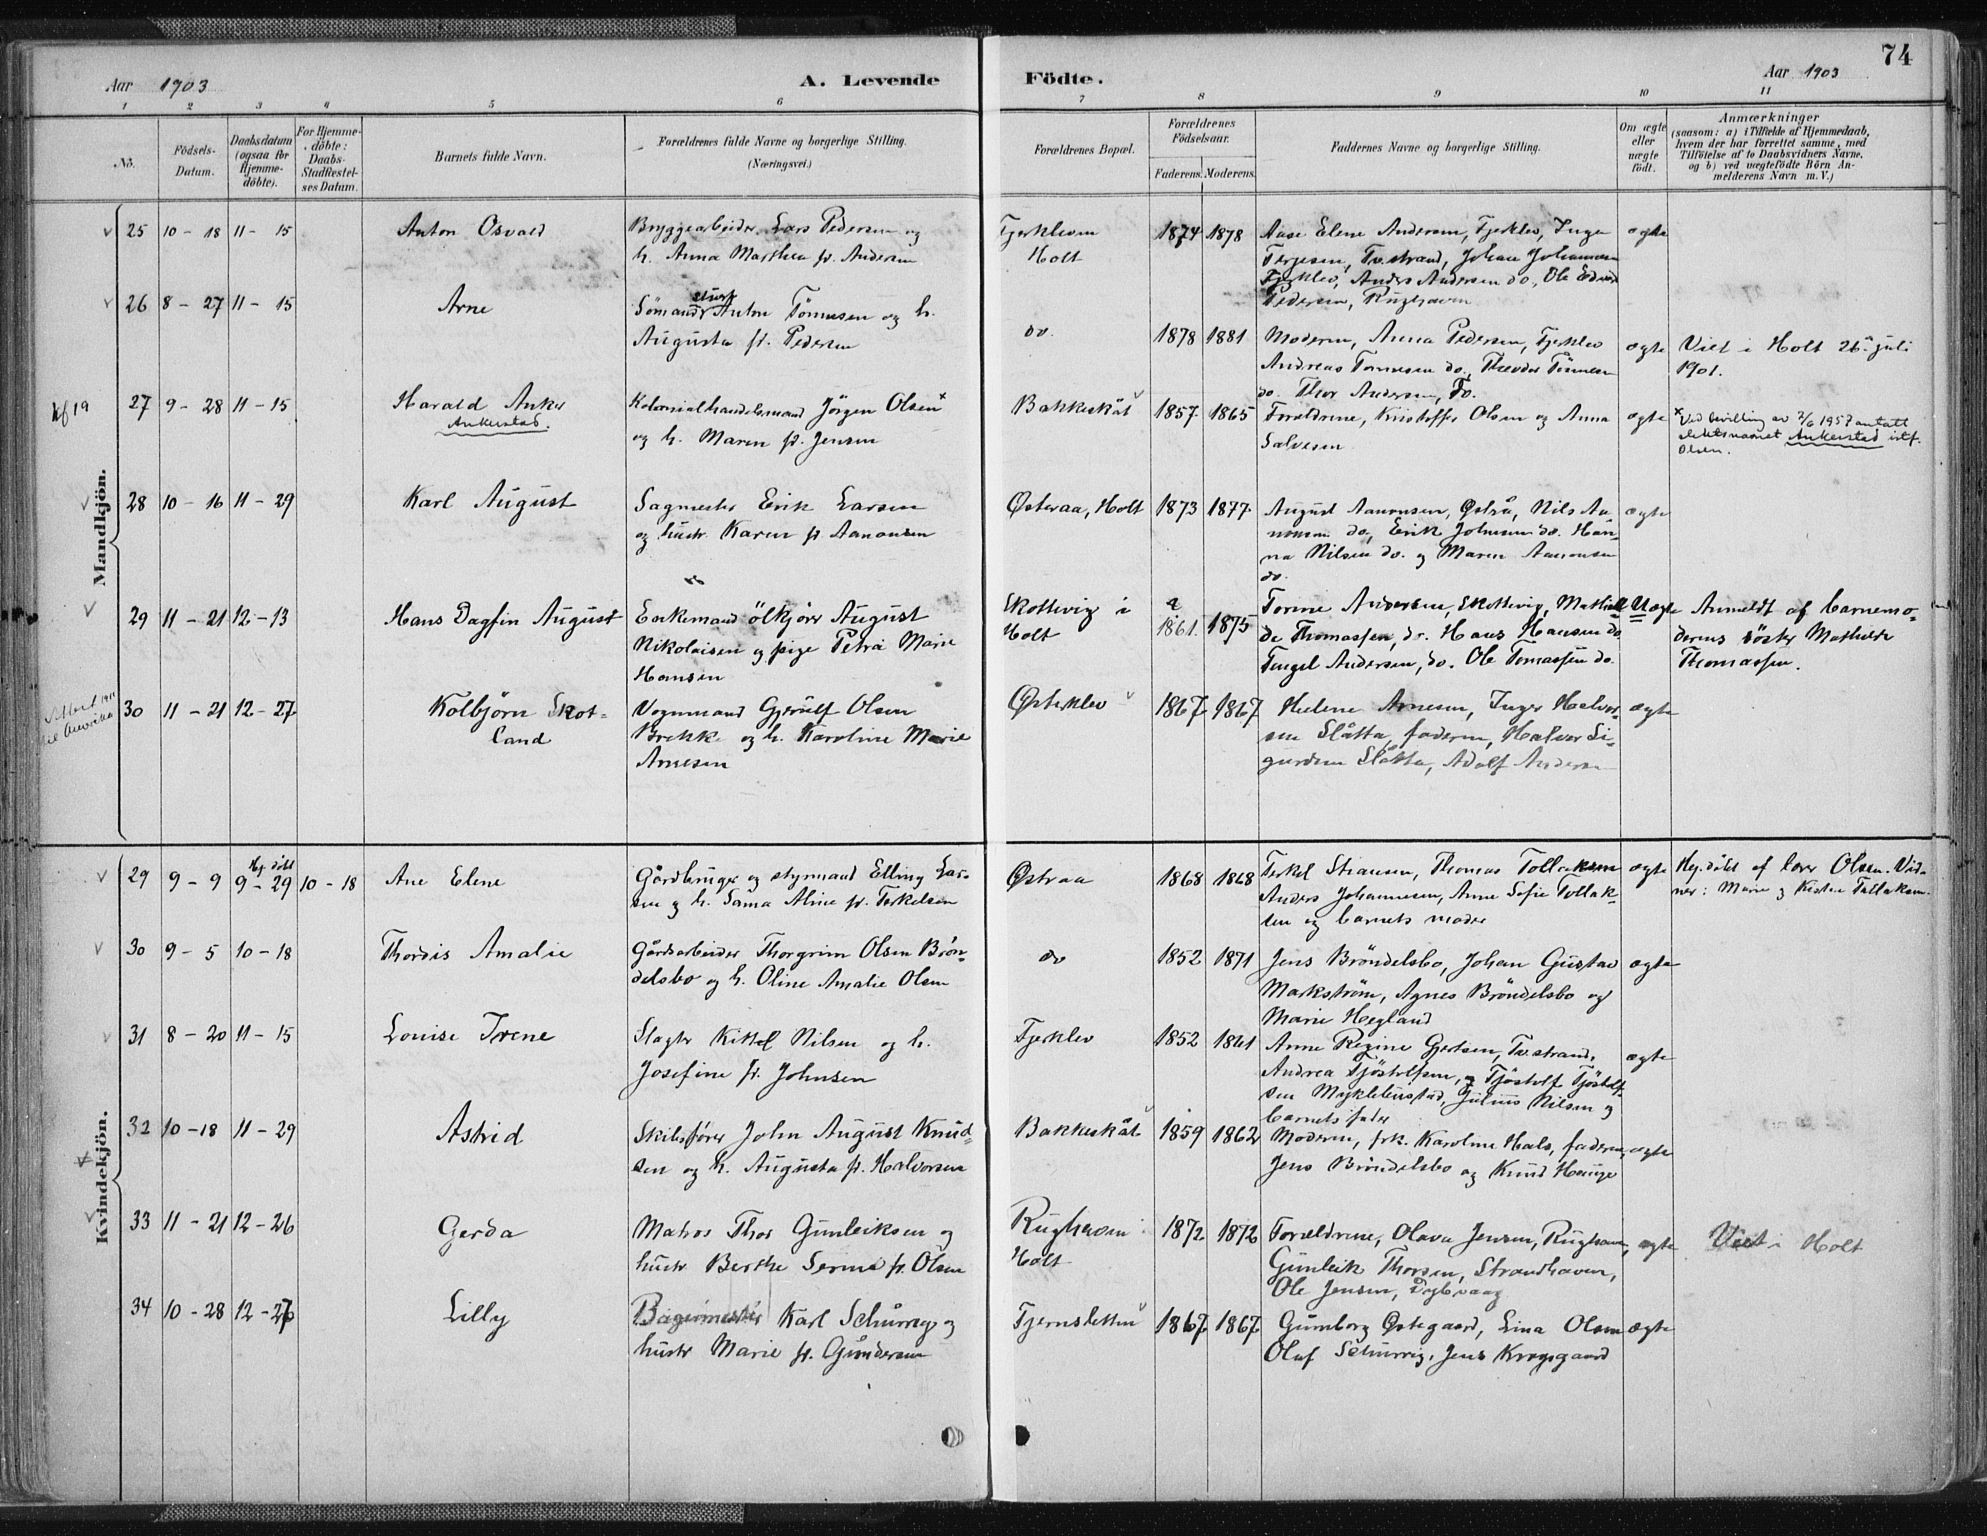 Aar 1903 A. Levende Födte. Aar 1903 74
1 2 3 4 5 6 7 8 9 10 11
No. Födsels-Datum. Daabsdatum (ogsaa for Hjemme-döbte). For Hjemme-döbte: Daabs-Stadfæstel-ses Datum. Barnets fulde Navn. Forældrenes fulde Navne og borgerlige Stilling. (Næringsvei.) Forældrenes Bopæl. Forældrenes Födselsaar. Faderens. Moderens. Faddernes Navne og borgerlige Stilling. Om ægte eller uægte födt. Anmærkninger (saasom: a) i Tilfælde af Hjemmedaab, hvem der har forrettet samme, med Tilföielse af to Daabsvidners Navne, og b) ved uægtefödte Börn An-melderens Navn m. V.)
Mandkjön.
25 10-18 11-15 Anton Osvald Bryggearbeider Lars Pedersen og
h. Anna Marthea f. Andersen
Fjerkleven
Holt
1874 1878 Aase Elene Andersen, Fjerklev, Inga
Terjesen, Tv.strand, Johan Johannesen
Fjerklev, Anders Andersen do, Ole Edvard
Pedersen, Rughaven
ægte
26 8-27 11-15 Arne Sömand Anton Tönnesen og h.
Augusta f. Pedersen
do. 1878 1881 Moderen, Anna Pedersen, Fjerklev
Andreas Tönnesen do, Theodor Tönnesen
do. Thor Andersen, Tv.
ægte Viet i Holt 26. juli
1901.
27 9-28 11-15 Harald Anker
Ankerstad.
Kolonialhandelsmand Jörgen Olsen x
og h. Maren f. Jensen
Bakkeskåt 1857 1865 Forældrene, Kristoffer Olsen og Anna
Salvesen
ægte x Ved bevilling av 7/6 1957 antatt
slektsnavnet Ankerstad istf.
Olsen.
28 10-16 11-29 Karl August Sagmester Erik Larsen
og hustr. Karen f. Aanonsen
Østeraa, Holt 1873 1877 August Aanonsen, Østrå, Nils Aa-
nonsen do, Erik Johnsen do. Han-
na Nilsen do. og Maren Aanonsen
do.
ægte
29 11-21 12-13 Hans Dagfin August Enkemand ölkjörer August
Nikolaisen og pige Petra Marie
Hansen
Skottevig i
Holt
1861. 1875 Torine Andersen, Skottevig, Mathil-
de Thomassen, do. Hans Hansen do.
Tengel Andersen, do. Ole Tomassen do.
Uægte Anmeldt af barnemo-
derens söster Mathilde
Thomassen.
30 11-21 12-27 Kolbjörn Skot-
land
Vognmand Gjerulf Olsen
Brekke og h. Karoline Marie
Arnesen
Østerklev 1867 1867 Helene Arnesen, Inger Halvor-
sen Slåtta, faderen, Halvor Si-
gurdsen Slåtta, Adolf Andersen
ægte
Kvindekjön.
29 9-9 Hj. döbt 9-29 10-18 Ane Elene Gårdbruger og styrmand Elling Lar-
sen og h. Sama Aline f. Terkelsen
Østraa 1868 1868 Terkel Stiansen, Thomas Tollaksen
Anders Johannesen, Anne Sofie Tollak-
sen og barnets moder
ægte Hj. döbt af lærer Olsen. Vid-
ner: Marie og Kirstine Tollaksen.
30 9-5 10-18 Thordis Amalie Gårdsarbeider Thorgrim Olsen Brön-
delsbo og h. Oline Amalie Olsen
do 1852 1871 Jens Bröndelsbo, Johan Gustav
Markström, Agnes Bröndelsbo og
Marie Hegland
ægte
31 8-20 11-15 Louise Irene Slagter Kittel Nilsen og h.
Josefine f. Johnsen
Fjerklev 1852 1861 Anne Regine Gjertsen, Tv.strand,
Andrea Tjöstolfsen, og Tjöstolf Tjöstolf-
sen Myklebustad, Julius Nilsen og
barnets fader
ægte
32 10-18 11-29 Astrid Skibsförer John August Knud-
sen og h. Augusta f. Halvorsen
Bakkeskåt 1859 1862 Moderen, frk. Karoline Hals, faderen,
Jens Bröndelsbo og Knud Hauge
ægte
33 11-21 12-26 Gerda Matros Thor Gunleiksen og
hustr Berthe Serine f. Olsen
Rughaven
Holt
1872 1872 Forældrene, Olava Jensen, Rughaven,
Gunleik Thorsen, Strandhaven,
Ole Jensen, Dybvaag
ægte Viet i Holt
34 10-28 12-27 Lilly Bagermester Karl Schürrig og
hustr Marie f. Gundersen
Fjernsletten 1867 1867 Gunborg Østegaard, Lina Olsen
Oluf Schurrig, Jens Krogsgaard
ægte